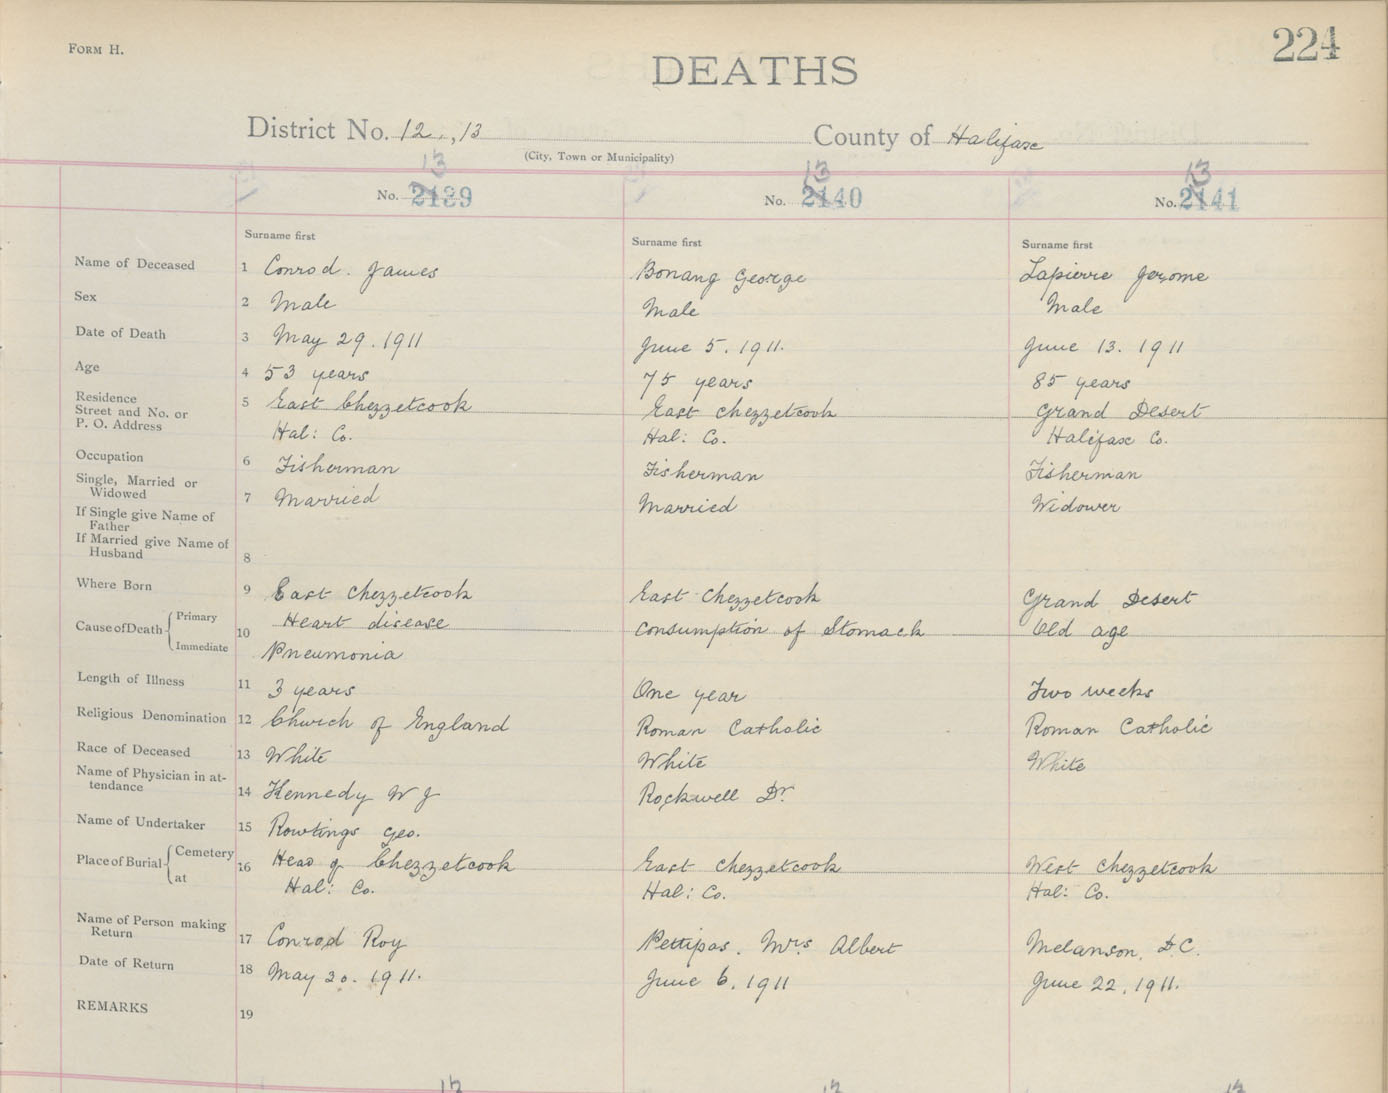 FORM H.
224
DEATHS
District No. 12.,13
County of Halifax
(City, Town or Municipality)
13 13 13
No. 2139 No. 2140 No. 2141
Surname first Surname first Surname first
Name of Deceased 1 Conrod. James Bonang George Lapierre Jerome
Sex 2 Male Male Male
Date of Death 3 May 29. 1911 June 5. 1911. June 13. 1911
Age 4 53 years 75 years 85 years
Residence
Street and No. or 5 East Chezzetcook East Chezzetcook Grand Desert
P. O. Address Hal: Co. Hal: Co. Halifax Co.
Occupation 6 Fisherman Fisherman Fisherman
Single, Married or
Widowed 7 Married Married Widower
If Single give Name of
Father
If Married give Name of
Husband 8
Where Born 9 East Chezzetcook East Chezzetcook Grand Desert
Cause of Death Primary 10 Heart disease Consumption of Stomach Old age
Immediate Pneumonia
Length of Illness 11 3 years One year Two weeks
Religious Denomination 12 Church of England Roman Catholic Roman Catholic
Race of Deceased 13 White White White
Name of Physician in at-
tendance 14 Kennedy W J Rockwell Dr.
Name of Undertaker 15 Rowlings Geo.
Place of Burial Cemetery 16 Head of Chezzetcook East Chezzetcook West Chezzetcook
at Hal: Co. Hal: Co. Hal: Co.
Name of Person making
Return 17 Conrod Roy Pettipas. Mrs Albert Melanson. D.C.
Date of Return 18 May 30. 1911. June 6. 1911 June 22. 1911.
REMARKS 19